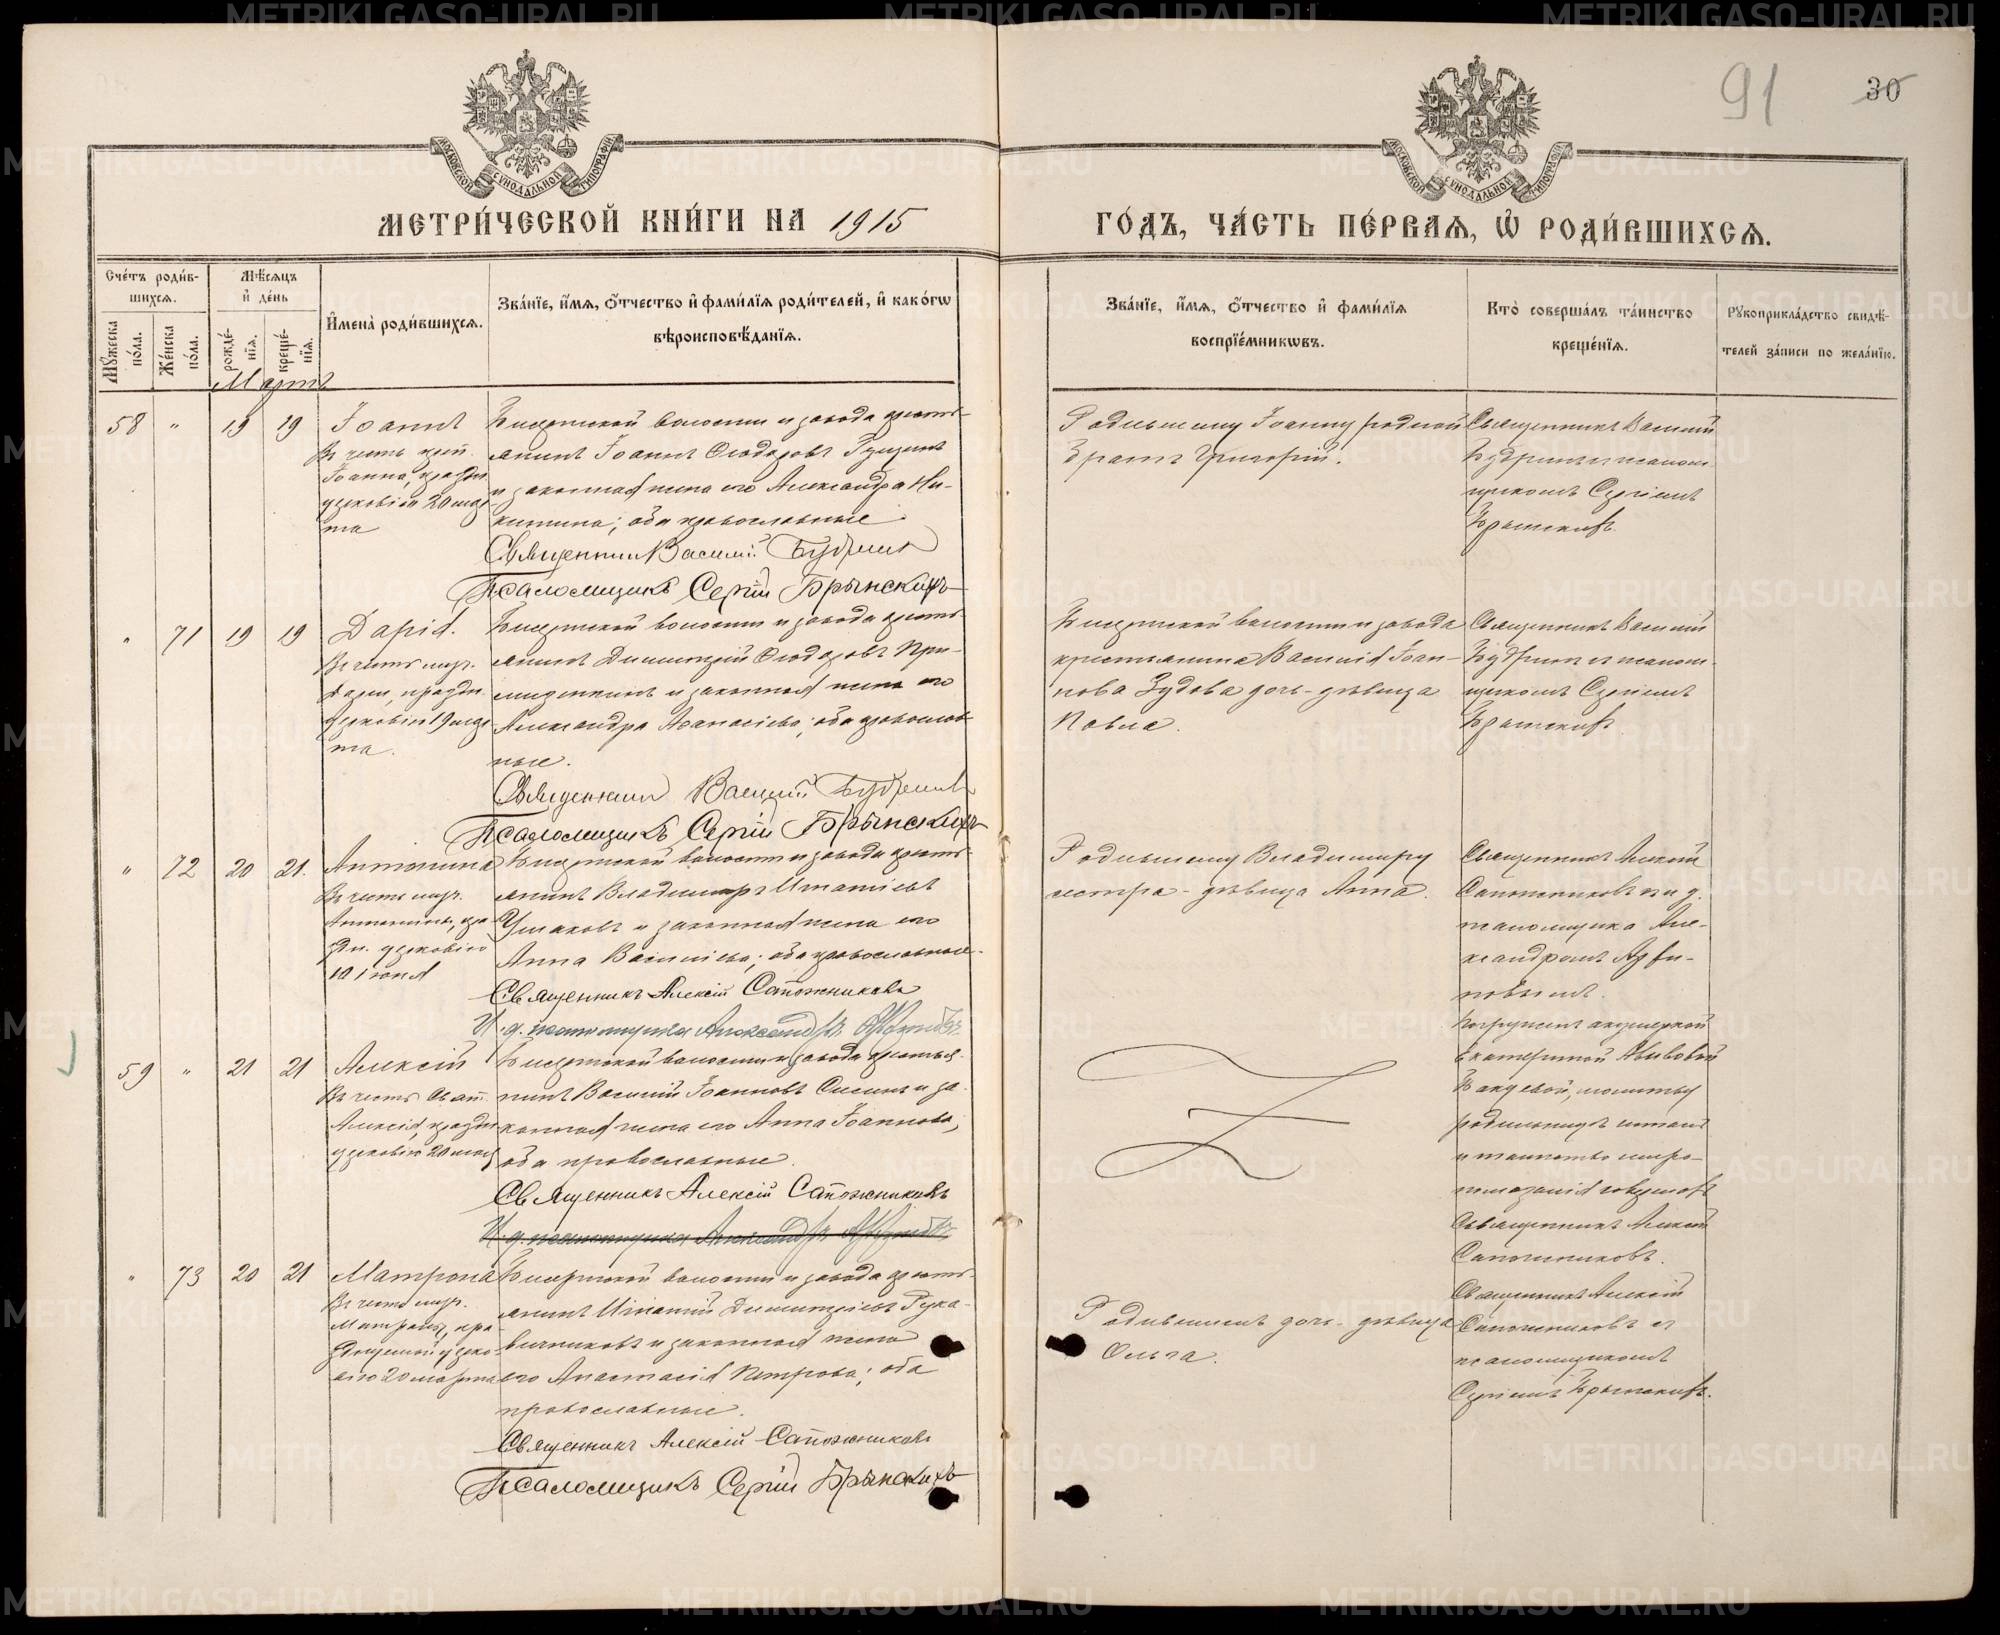 91
30
МОСКОВСКОЙ СѴНОДАЛЬНОЙ ТИПОГРАФІИ
МОСКОВСКОЙ СѴНОДАЛЬНОЙ ТИПОГРАФІИ
МЕТРИ́ЧЕСКОЙ КНИ́ГИ НА 1915
ГО́ДЪ, ЧА́СТЬ ПЕ́РВАЯ, Ѡ҆ РОДИ́ВШИХСЯ.
Сче́тъ роди́в-
шихся.
Му́жеска по́ла.
Же́нска по́ла.
Мѣ́сяцъ
и҆ де́нь
рожде́-
нїя.
креще́-
нїя.
И҆мена̀ роди́вшихся.
Зва́нїе, и҆́мя, ѻ҆́тчество и҆ фами́лїя роди́телей, и҆ како́гѡ
вѣроисповѣ́данїя.
Зва́нїе, и҆́мя, ѻ҆́тчество и҆ фами́лїя
воспрїе́мникѡвъ.
Кто̀ соверша́лъ та́инство
креще́нїя.
Рꙋкоприкла́дство свидѣ́-
телей за́писи по жела́нїю.
Мартъ
58 " 19 19 Іоаннъ
Въ честь
Іоанна,
церковію 20 мар
та
Бисертской волости и завода кресть-
янинъ Іоаннъ Ѳеодоровъ
и законная жена его Александра Ни-
китина; оба православные
Священникъ Василій Будринъ
Псаломщикъ Сергій Брынскихъ
Родившему Іоанну родной
братъ Григорій.
Священникъ Василій
Будринъ съ псалом-
щикомъ Сергіемъ
Брынскихъ.
" 71 19 19 Дарія.
Въ честь муч.
Даріи, праздн.
церковію 19 мар
та.
Бисертской волости и завода кресть-
янинъ Димитрій Ѳеодоровъ При-
и законная жена его
Александра Аѳанасіева; оба православ-
ные.
Священникъ Василій Будринъ
Псаломщикъ Сергій Брынскихъ
Бисертской волости и завода
крестьянина Василія Іоан-
нова Зудова дочь-дѣвица
Павла.
Священникъ Василій
Будринъ съ псалом-
щикомъ Сергіемъ
Брынскихъ
" 72 20 21. Антонина
Въ честь муч.
Антонины, пра-
здн. церковію
10 іюня
Бисертской волости и завода кресть-
янинъ Владимиръ Игнатіевъ
Ушаковъ и законная жена его
Анна Васильева; оба православные.
Священникъ Алексій Сапожниковъ
И. д. псаломщика Александръ
Родившему Владимиру
сестра-дѣвица Анна.
Священникъ Алексій
Сапожниковъ съ и. д.
псаломщика Але-
ксандромъ
59 " 21 21 Алексій
Въ честь Свят.
Алексія, праздн
церковію 20 мая
Бисертской волости и завода крестья-
нинъ Василій Іоанновъ и за-
конная жена его Анна Іоаннова;
оба православные.
Священникъ Алексій Сапожниковъ
И. д. псаломщика Александръ
Погруженъ акушеркой
Екатериной
молитвы
родильницѣ читалъ
и таинство миро-
помазанія совершалъ
Священникъ Алексій
Сапожниковъ.
" 73 20 21 Матрона
Въ честь муч.
Матроны, пра
здуемой церко-
вію 20 марта
Бисертской волости и завода кресть-
янинъ Игнатій Димитріевъ Рука-
вишниковъ и законная жена
его Анастасія Петрова; оба
православные.
Священникъ Алексій Сапожниковъ
Псаломщикъ Сергій Брынскихъ
дочь-дѣвица
Ольга.
Священникъ Алексій
Сапожниковъ съ
псаломщикомъ
Сергіемъ Брынскихъ.
METRIKI.GASO-URAL.RU